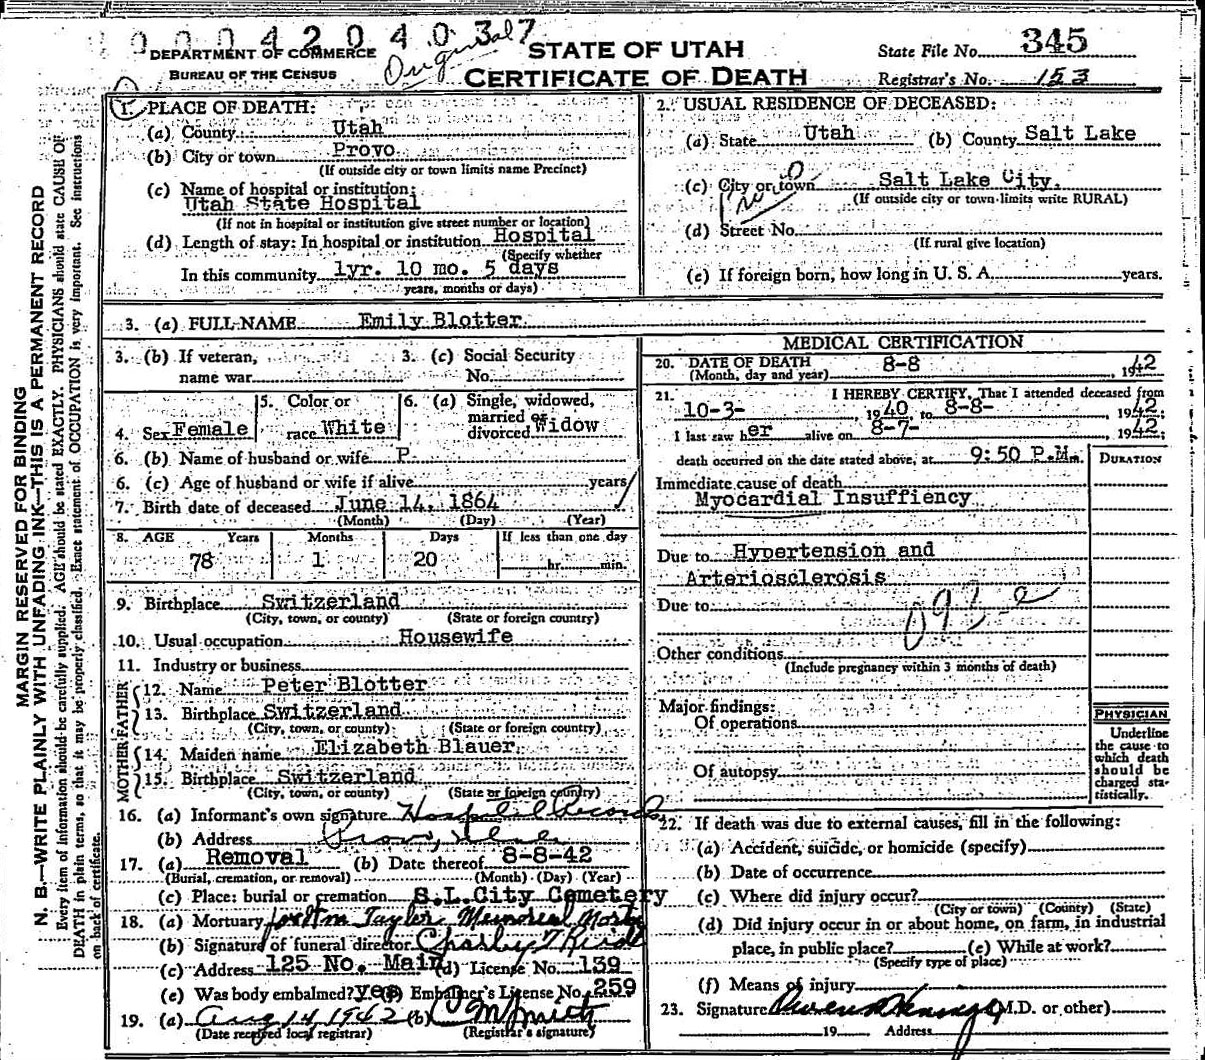 0 0 0 4 2 0 4 0 3 7
Original
DEPARTMENT OF COMMERCE
BUREAU OF THE CENSUS
STATE OF UTAH
CERTIFICATE OF DEATH
State File No. 345
Registrar's No. 153
MARGIN RESERVED FOR BINDING
N. B.—WRITE PLAINLY WITH UNFADING INK—THIS IS A PERMANENT RECORD
Every item of information should be carefully supplied. AGE should be stated EXACTLY. PHYSICIANS should state CAUSE OF
DEATH in plain terms, so that it may be properly classified. Exact statement of OCCUPATION is very important. See instructions
on back of certificate.
1. PLACE OF DEATH:
(a) County Utah
(b) City or town Provo
(If outside city or town limits name Precinct)
(c) Name of hospital or institution:
Utah State Hospital
(If not in hospital or institution give street number or location)
(d) Length of stay: In hospital or institution Hospital
(Specify whether
In this community 1yr. 10 mo. 5 days
years, months or days)
2. USUAL RESIDENCE OF DECEASED:
(a) State Utah (b) County Salt Lake
(c) City or town Salt Lake City.
(If outside city or town limits write RURAL)
(d) Street No.
(If rural give location)
(e) If foreign born, how long in U. S. A. years.
3. (a) FULL NAME Emily Blotter
3. (b) If veteran, name war
3. (c) Social Security No.
4. Sex Female
5. Color or race White
6. (a) Single, widowed, married or divorced Widow
6. (b) Name of husband or wife P.
6. (c) Age of husband or wife if alive years
7. Birth date of deceased June 14, 1864
(Month) (Day) (Year)
8. AGE Years Months Days If less than one day
78 1 20 hr. min.
9. Birthplace Switzerland
(City, town, or county) (State or foreign country)
10. Usual occupation Housewife
11. Industry or business
FATHER
12. Name Peter Blotter
13. Birthplace Switzerland
(City, town, or county) (State or foreign country)
MOTHER
14. Maiden name Elizabeth Blauer
15. Birthplace Switzerland
(City, town, or county) (State or foreign country)
16. (a) Informant's own signature Hospital Records
(b) Address Provo, Utah
17. (a) Removal (b) Date thereof 8-8-42
(Burial, cremation, or removal) (Month) (Day) (Year)
(c) Place: burial or cremation S.L.City Cemetery
18. (a) Mortuary Jos Wm Taylor Memorial Morty
(b) Signature of funeral director
(c) Address 125 No. Main (d) License No. 139
(e) Was body embalmed? yes (f) Embalmer's License No. 259
19. (a) Aug 14, 1942 (b)
(Date received local registrar) (Registrar's signature)
MEDICAL CERTIFICATION
20. DATE OF DEATH 8-8, 1942
(Month, day and year)
21. I HEREBY CERTIFY, That I attended deceased from
10-3-, 1940, to 8-8-, 1942;
I last saw her alive on 8-7-, 1942;
death occurred on the date stated above, at 9:50 P.M.
DURATION
Immediate cause of death
Myocardial Insuffiency
Due to Hypertension and
Arteriosclerosis
Due to
Other conditions
(Include pregnancy within 3 months of death)
Major findings:
Of operations
Of autopsy
PHYSICIAN
Underline
the cause to
which death
should be
charged sta-
tistically.
22. If death was due to external causes, fill in the following:
(a) Accident, suicide, or homicide (specify)
(b) Date of occurrence
(c) Where did injury occur?
(City or town) (County) (State)
(d) Did injury occur in or about home, on farm, in industrial
place, in public place? (e) While at work?
(Specify type of place)
(f) Means of injury
23. Signature (M.D. or other)
19 Address